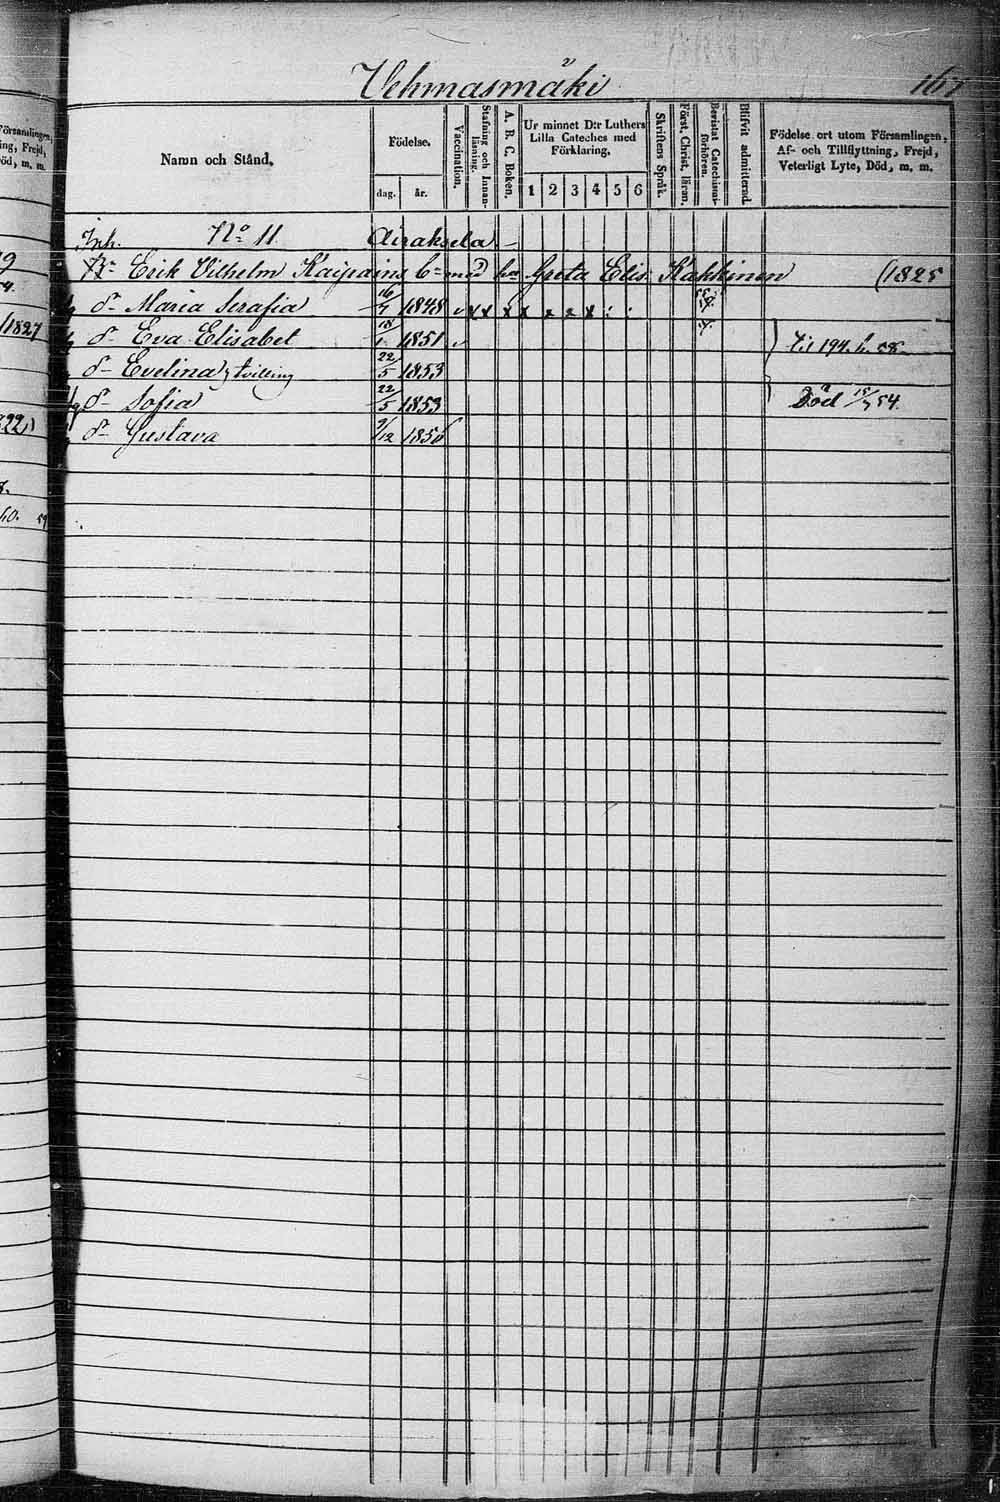 Vehmasmäki 167
Namn och Stånd.
Födelse.
dag. år.
Vaccination.
Stafning och Innan-läsning.
A. B. C. Boken.
Ur minnet D:r Luthers Lilla Cateches med Förklaring.
1 2 3 4 5 6
Skriftens Språk.
Först. Christ. läran.
Bevistat Catechismi-förhören.
Blifvit admitterad.
Födelse ort utom Församlingen, Af- och Tillflyttning, Frejd, Veterligt Lyte, Död, m. m.
Inh. No 11 Airaksela
Erik Vilhelm Kaipainen med Greta Elis. Kakkinen (1825
dr Maria Serafia 16/7 1848
dr Eva Elisabet 18/1 1851 til 194. h. 58
dr Evelina } tvilling 22/5 1853
dr Sofia 22/5 1853 Död 15/7 54.
dr Gustava 9/12 185